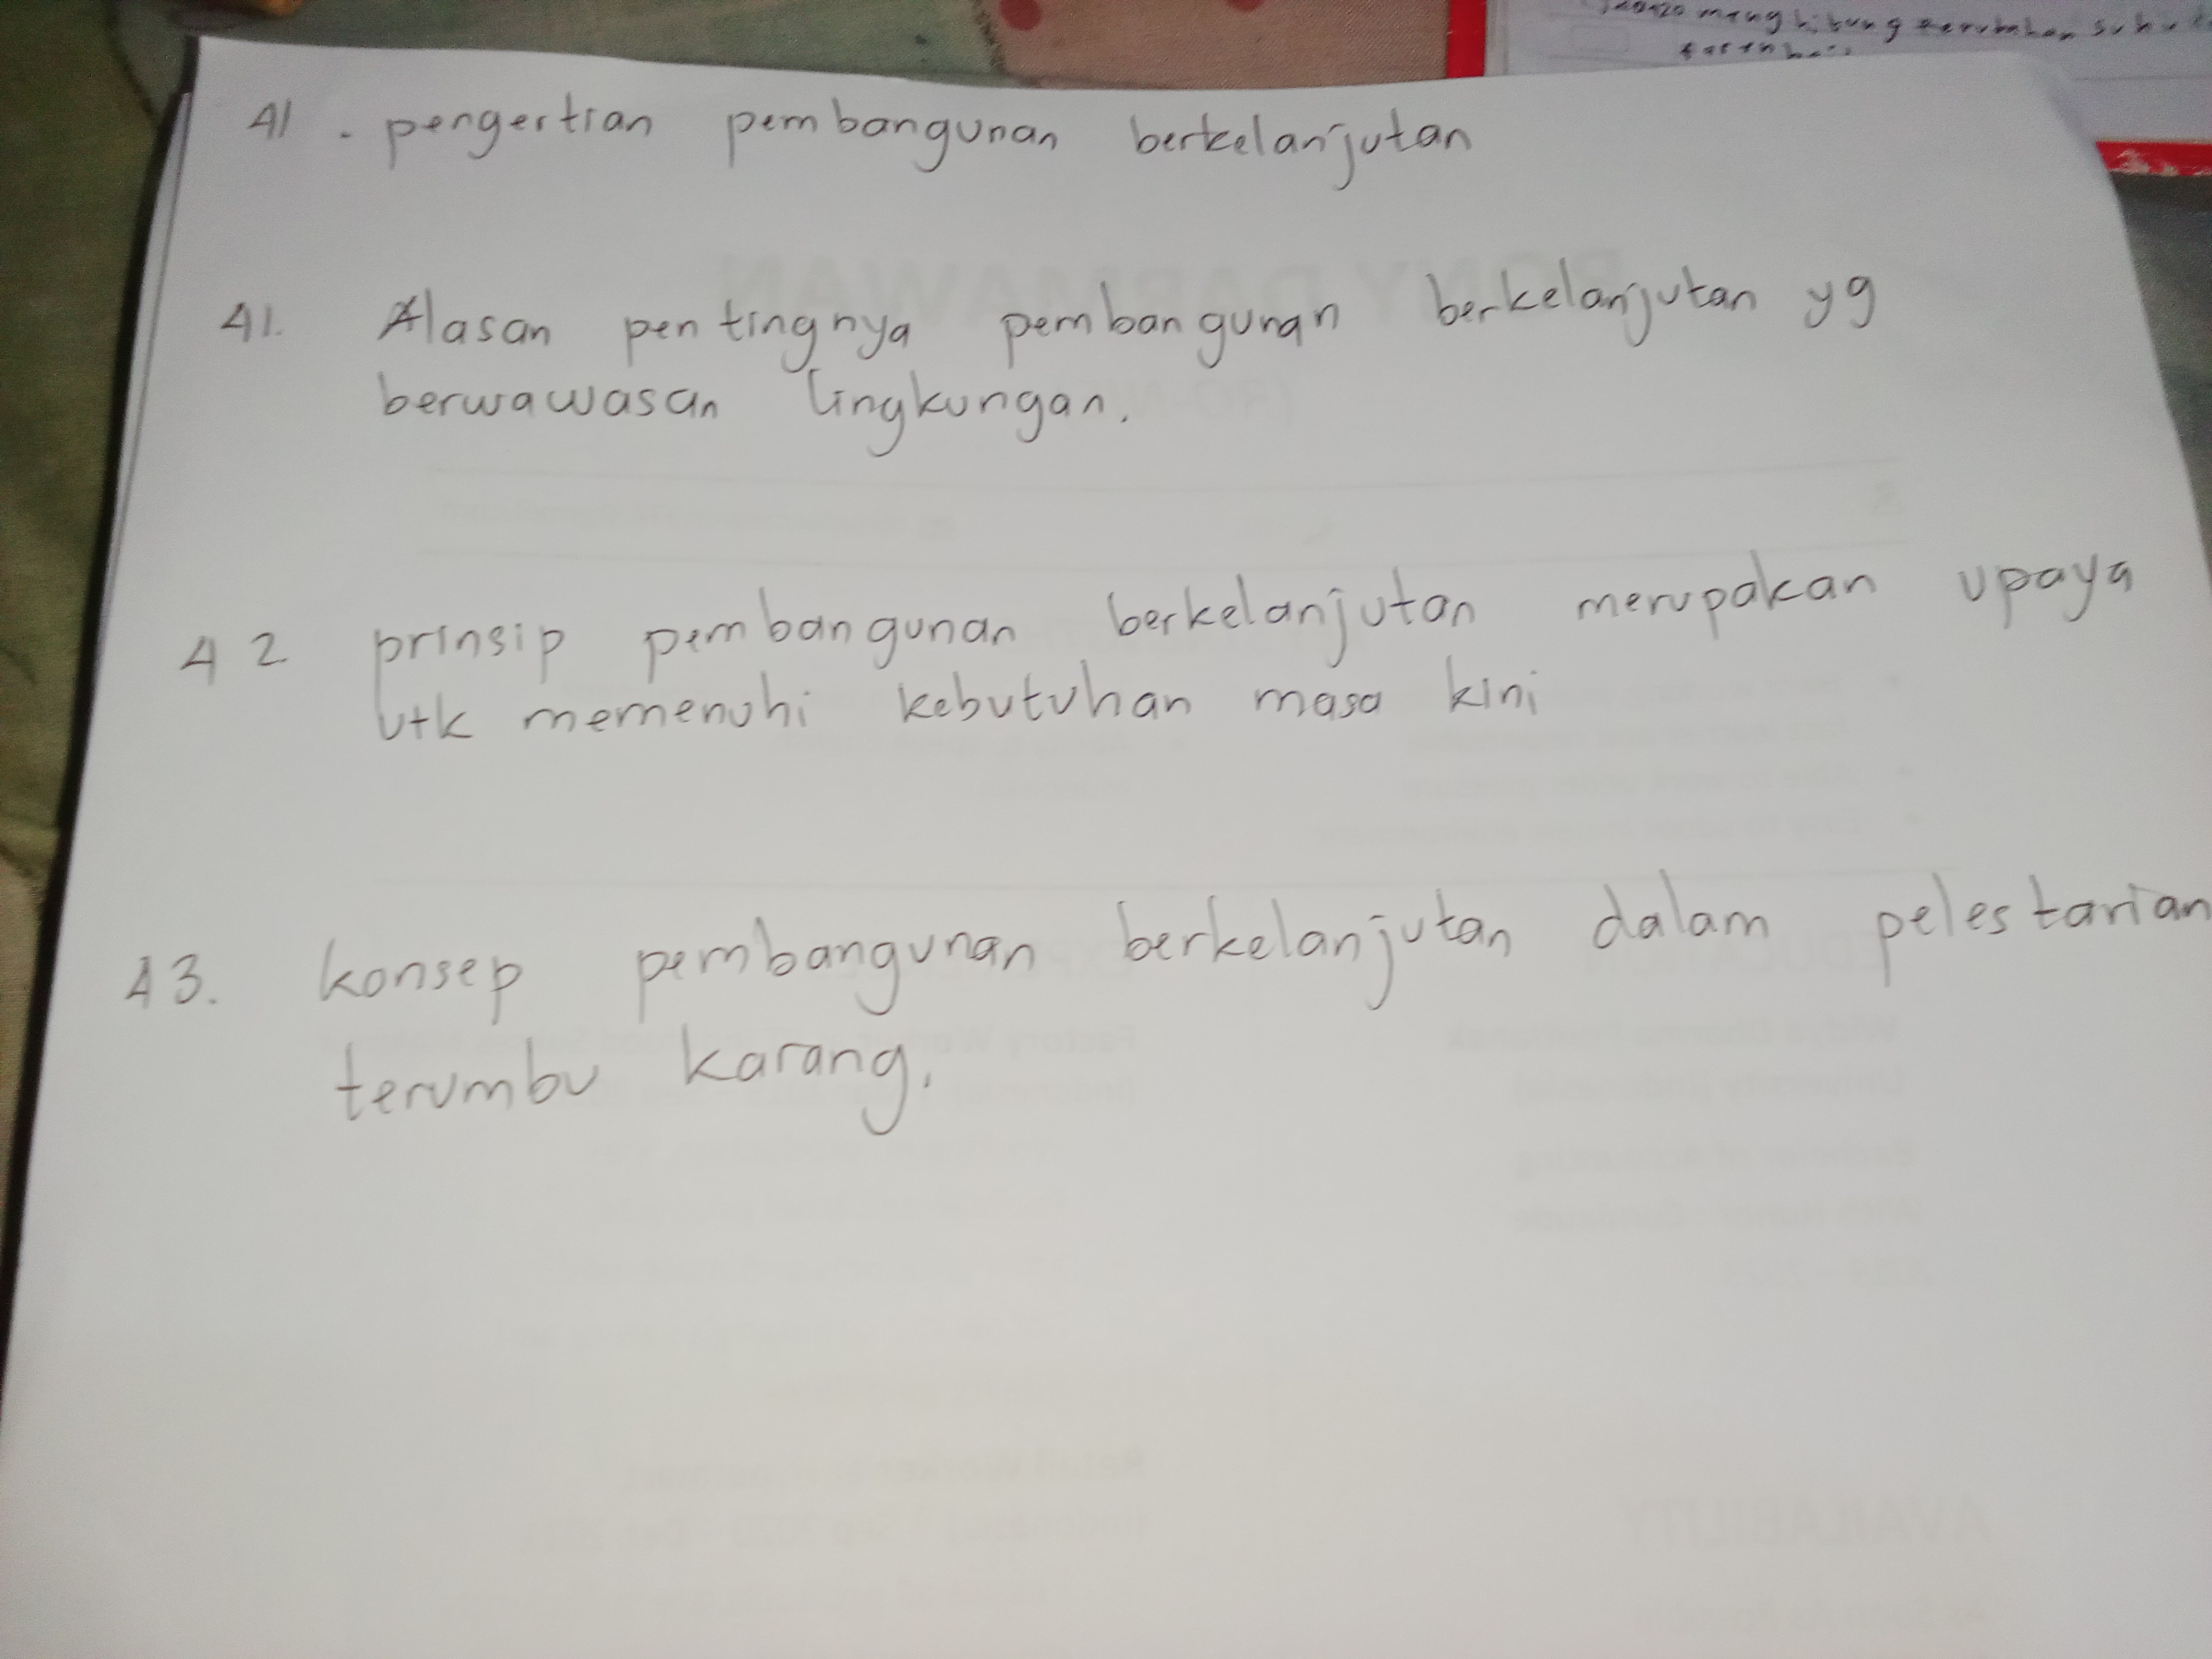 menghitung perubahan suhu
41 . pengertian pembangunan berkelanjutan
41. Alasan pentingnya pembangunan berkelanjutan yg
berwawasan lingkungan.
42 prinsip pembangunan berkelanjutan merupakan upaya
utk memenuhi kebutuhan masa kini
43. konsep pembangunan berkelanjutan dalam pelestarian
terumbu karang.